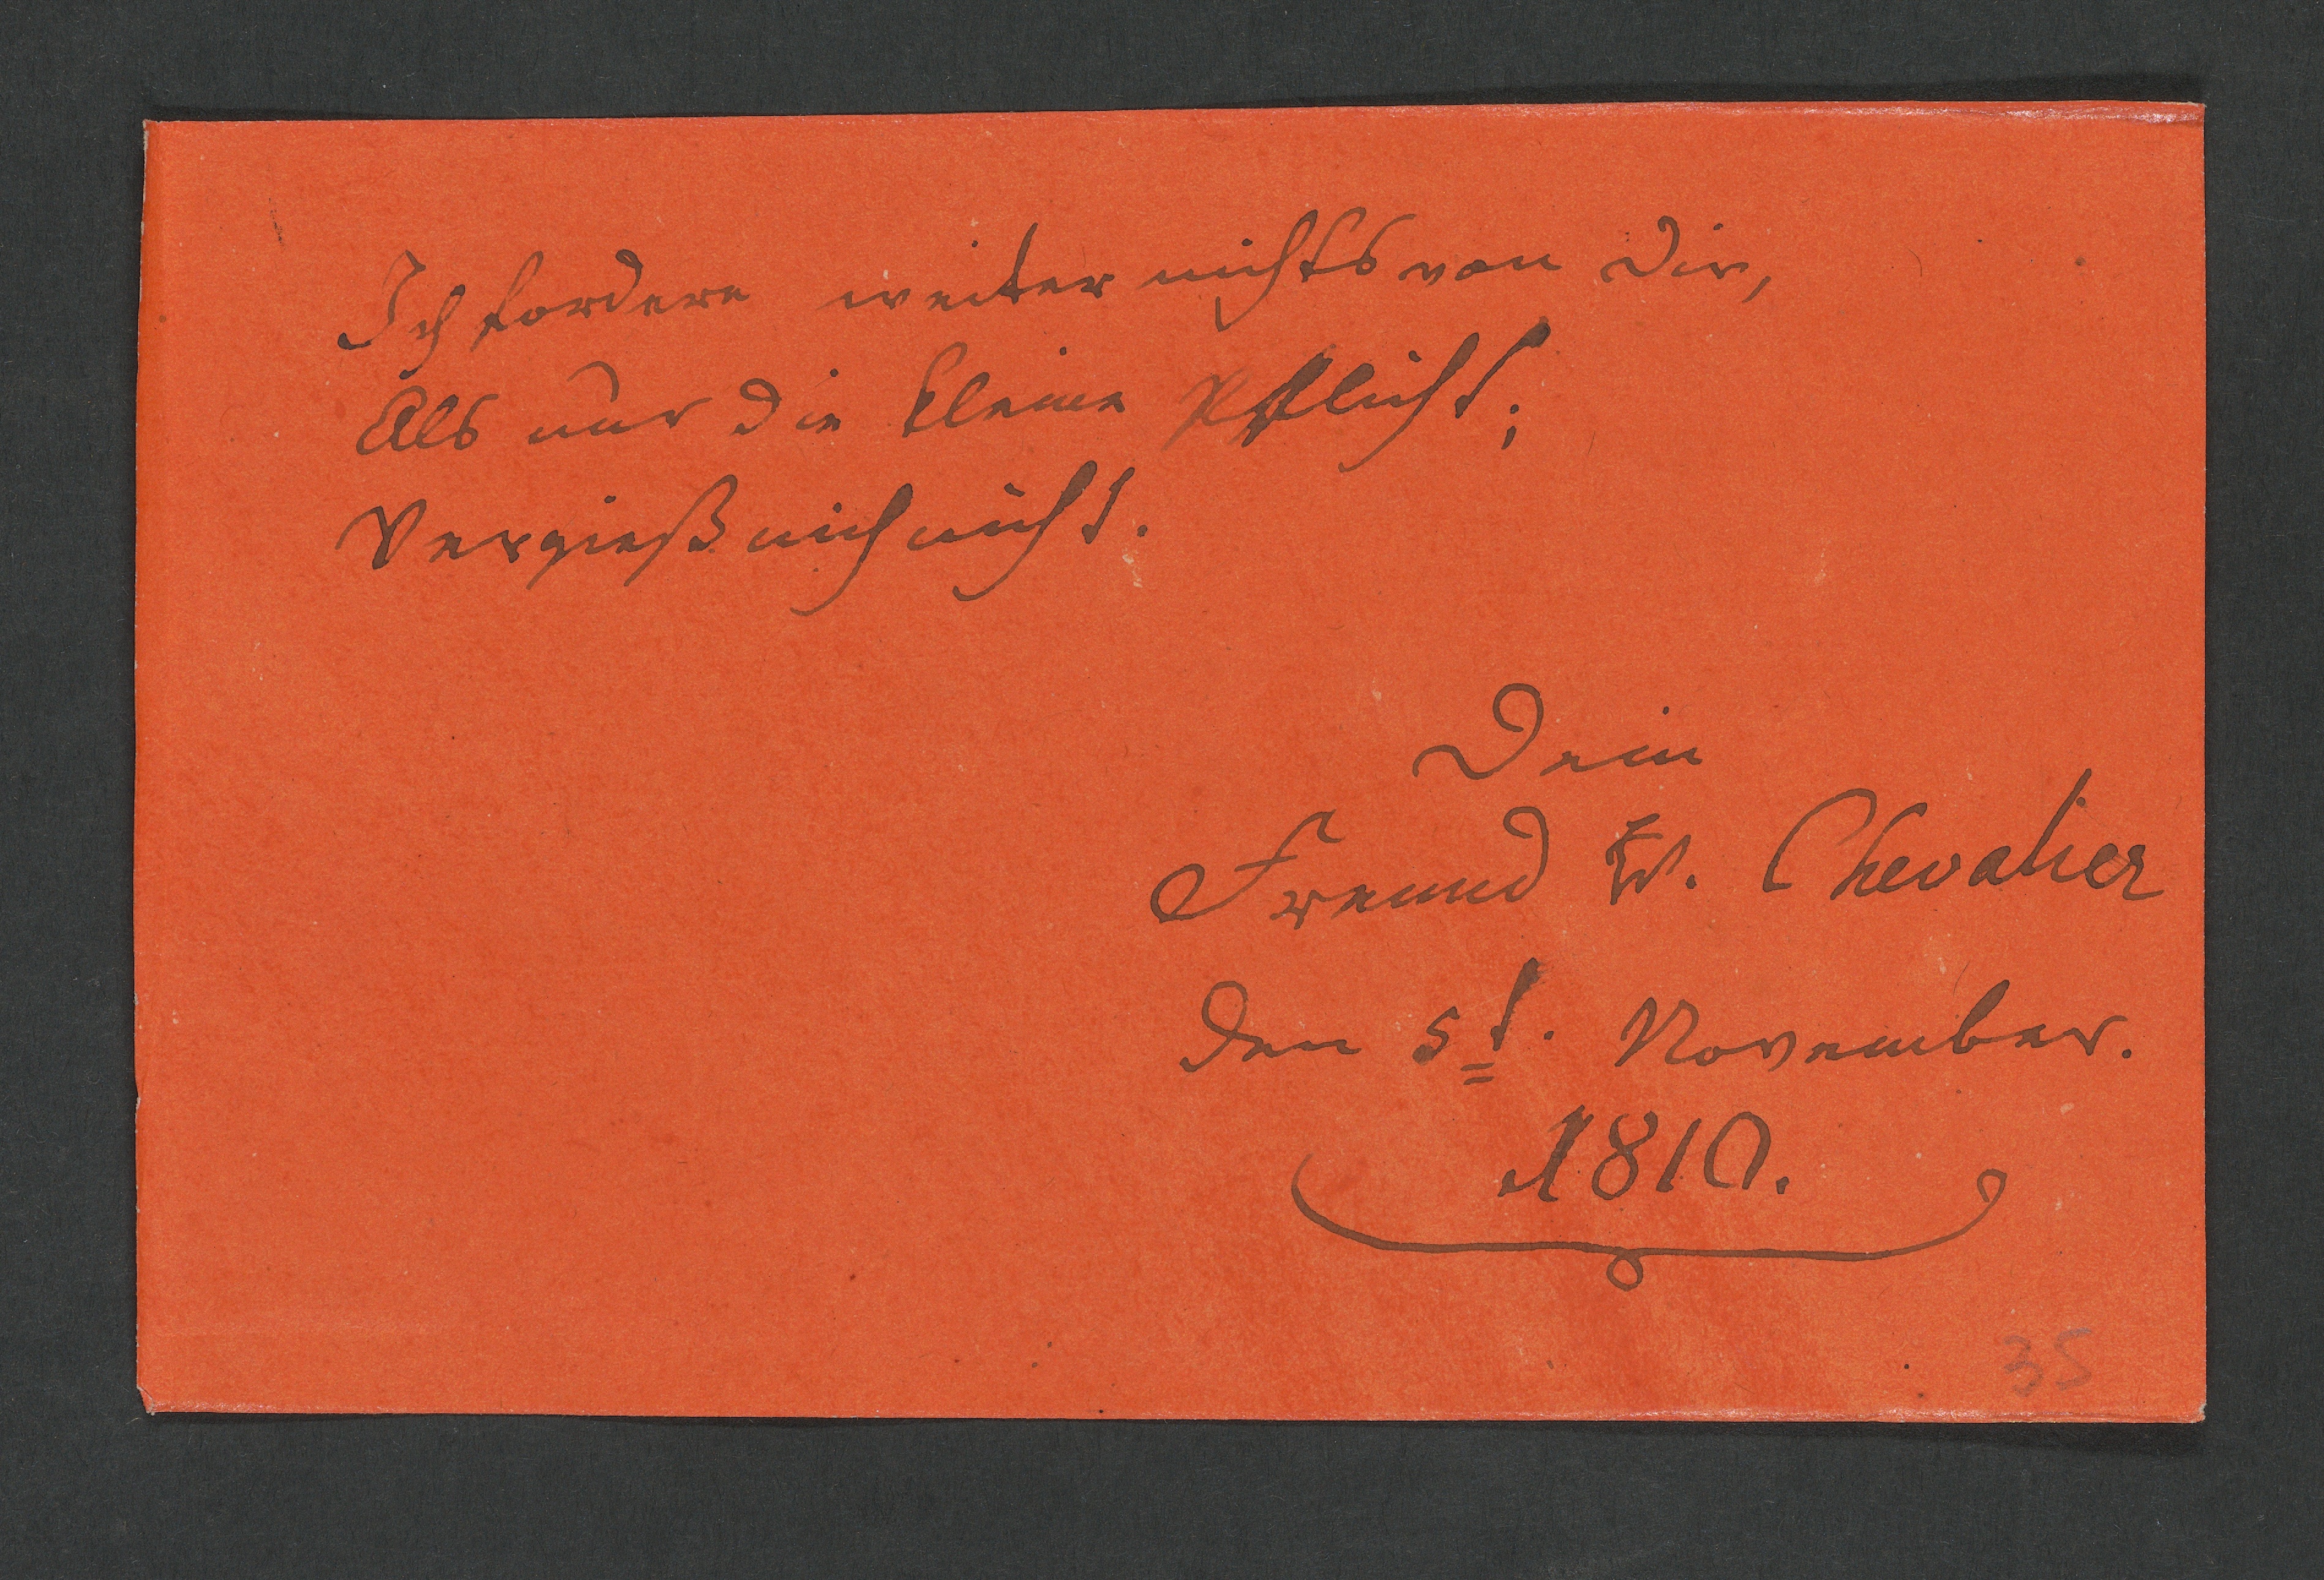 Ich fordere weiter nichts von dir,
Als nur die kleine Pflicht;
Vergieß mich nicht.
Dein
Freund W. Chevalier
den 5t. November.
1810.
35